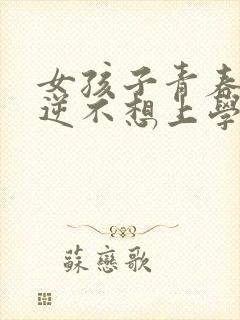 女孩子青春
逆不想上學
蘇戀歌